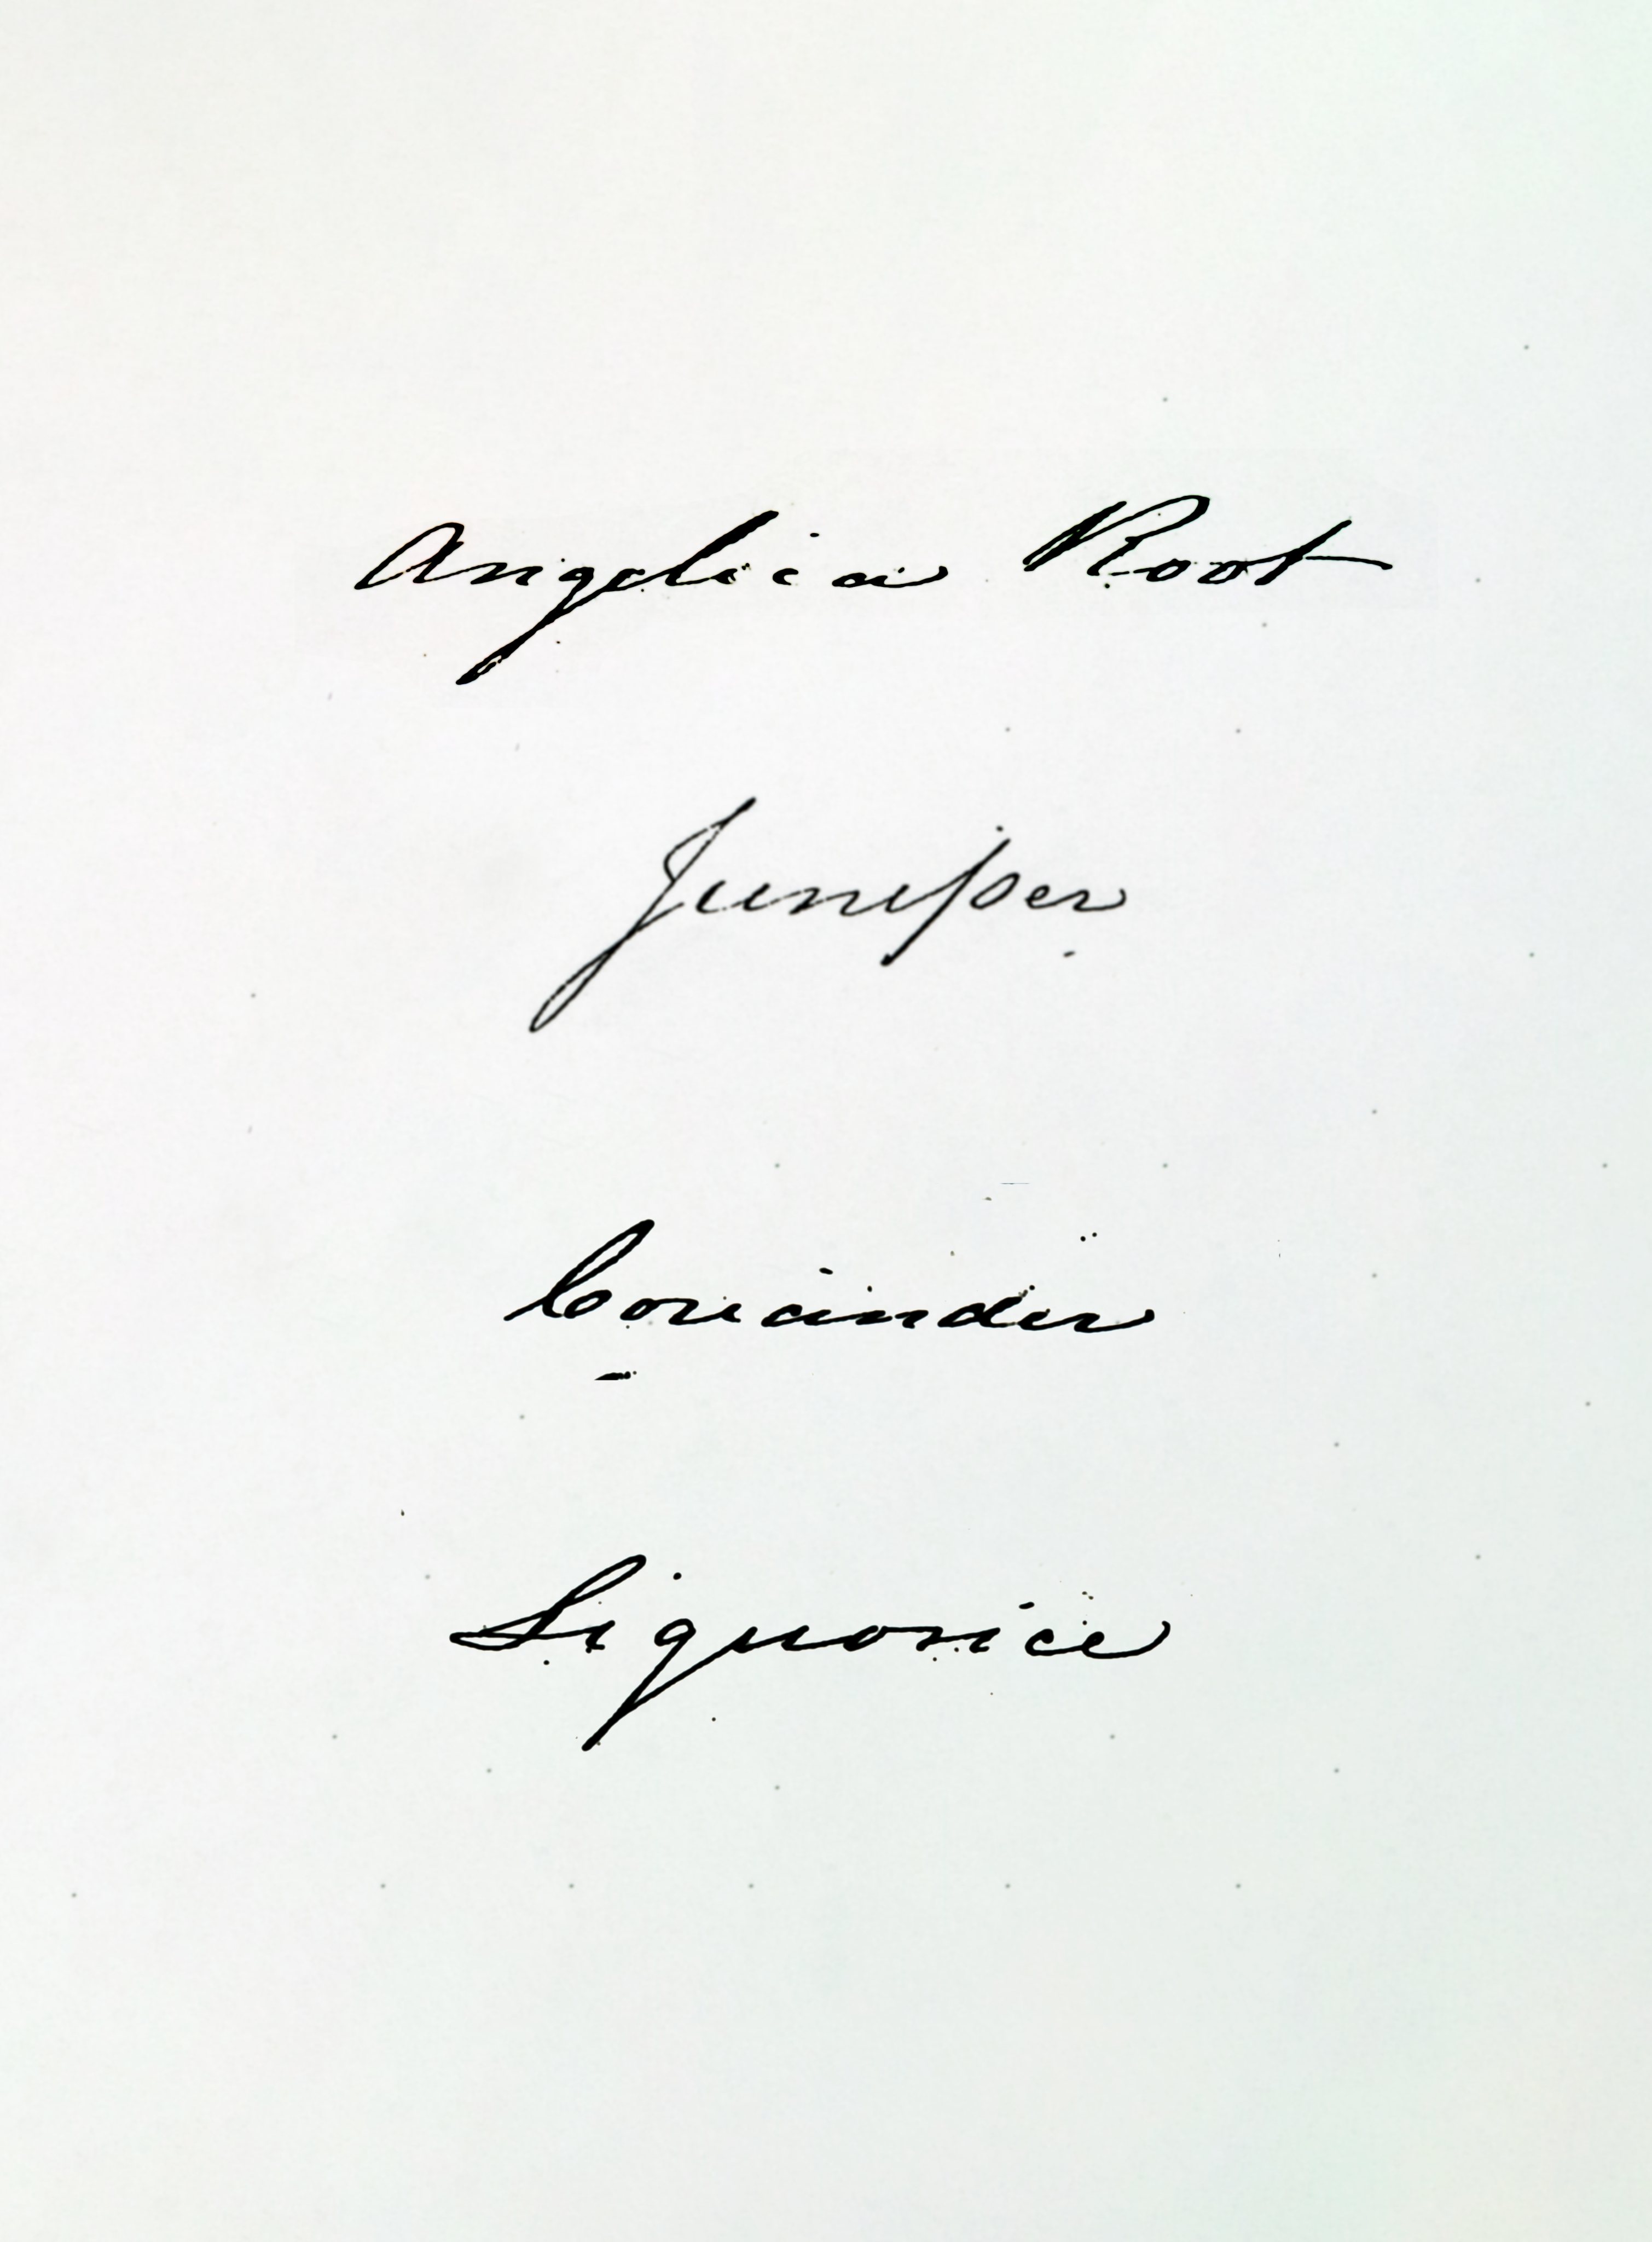 Angelica Root
Juniper
Coriander
Liquorice